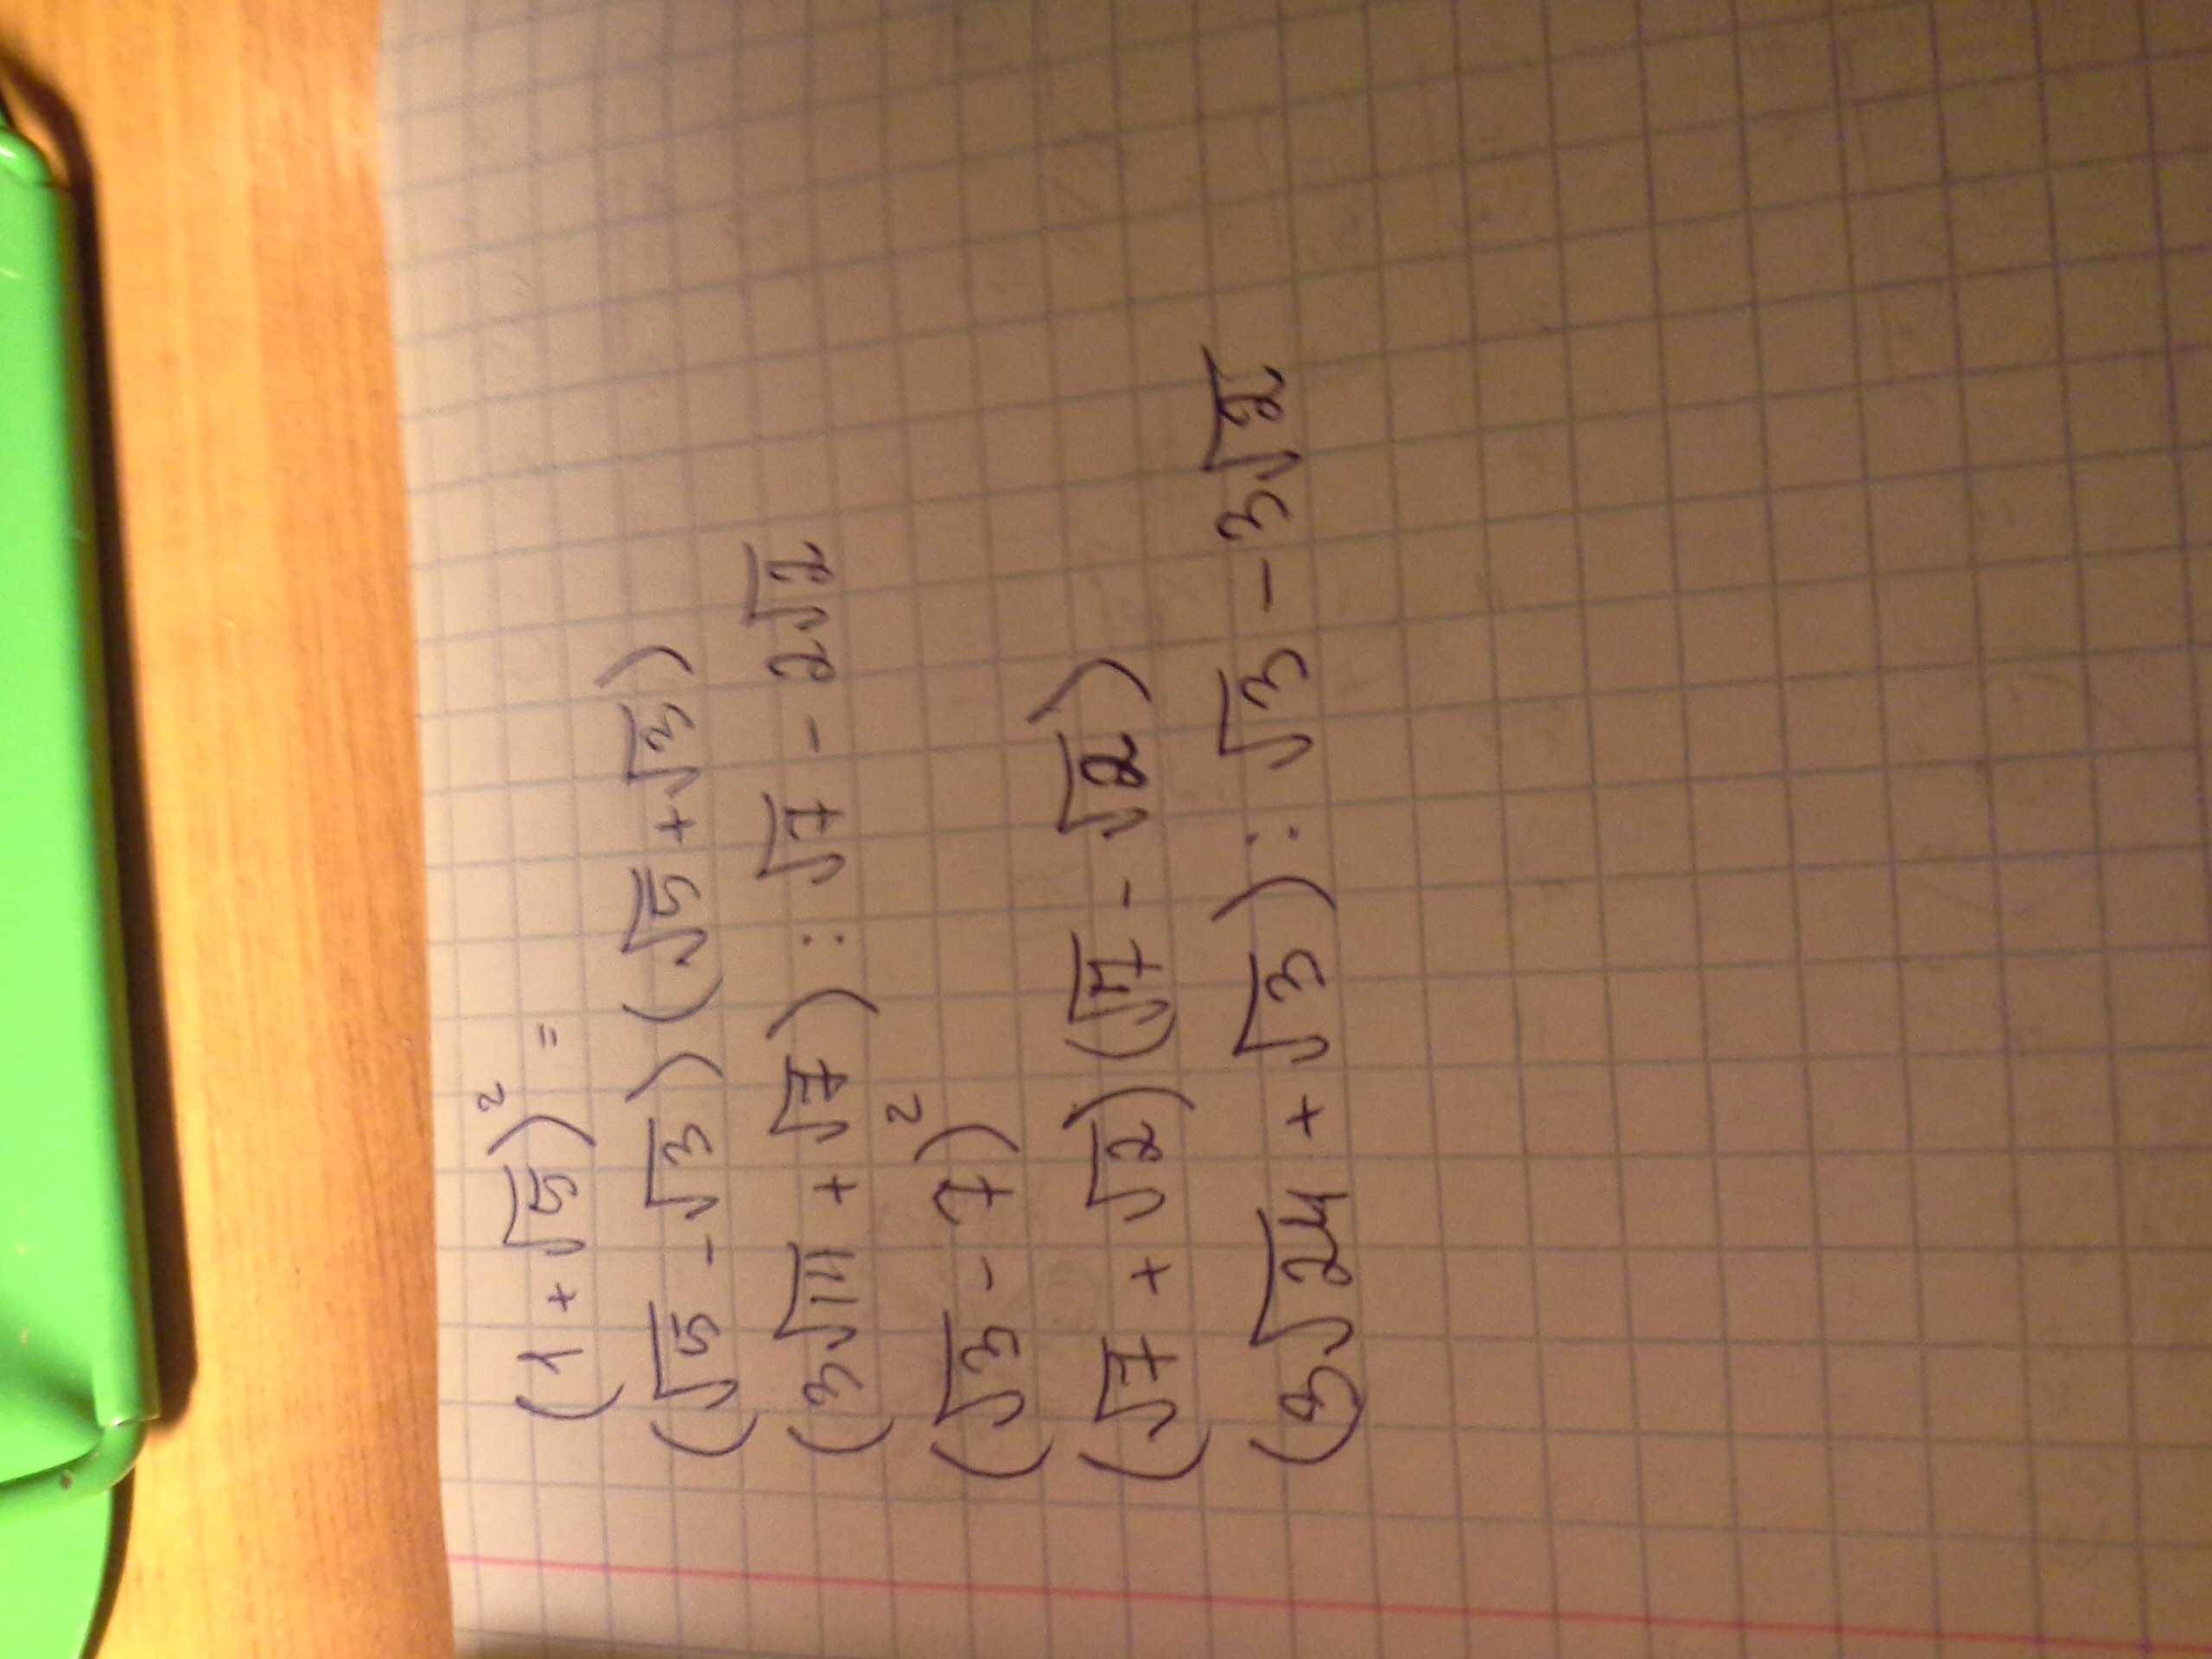 (1 + √5)² =
(√5 - √3) (√5 + √3)
(3√111 + √7) : √7 - 2√2
(√3 - 7)²
(√7 + √2) (√7 - √2)
(3√24 + √3) : √3 - 3√2